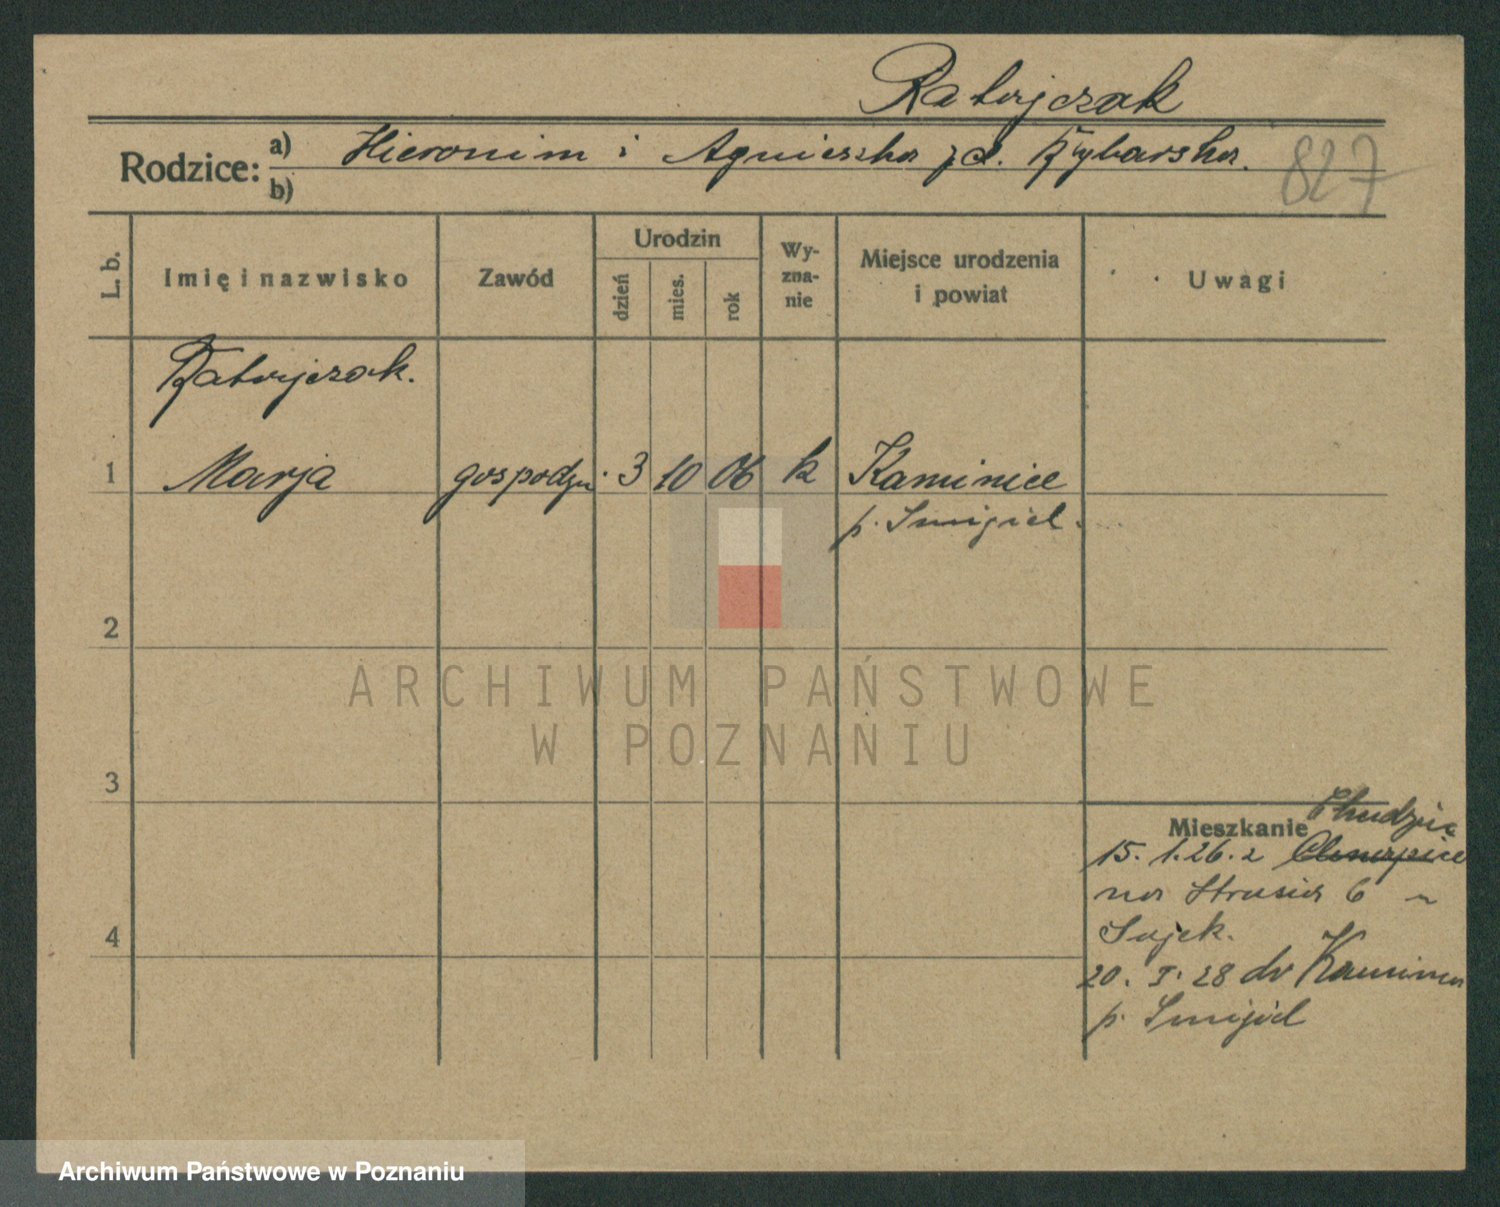 Ratajczak
Rodzice: a) Hieronim i Agnieszka zd. Rybarska.
b)
827
L. b. Imię i nazwisko Zawód Urodzin dzień mies. rok Wy-zna-nie Miejsce urodzenia i powiat Uwagi
Ratajczak.
1 Marja gospodyn. 3 10 06 k Kaminiec
p. Śmigiel.
2
ARCHIWUM PAŃSTWOWE
W POZNANIU
3
Mieszkanie
15. 1. 26. z
na 6
Sojek.
20. I. 28 do
p. Śmigiel
4
Archiwum Państwowe w Poznaniu